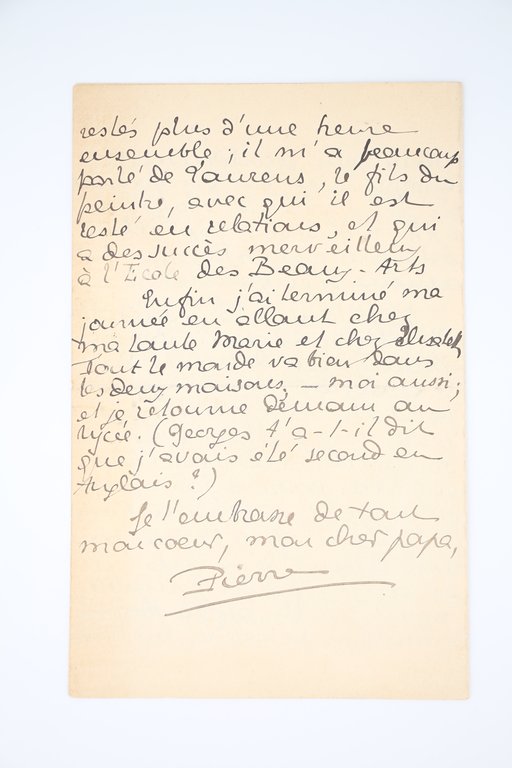 restés plus d'une heure
ensemble ; il m'a beaucoup
parlé de Laurens, le fils du
peintre, avec qui il est
resté en relations, et qui
a des succès merveilleux
à l'École des Beaux-Arts
Enfin j'ai terminé ma
journée en allant chez
ma tante Marie et chez Elisabeth
Tout le monde va bien dans
les deux maisons, — moi aussi ;
et je retourne demain au
lycée. (Georges t'a-t-il dit
que j'avais été second en
Anglais ?)
Je t'embrasse de tout
mon coeur, mon cher papa,
Pierre